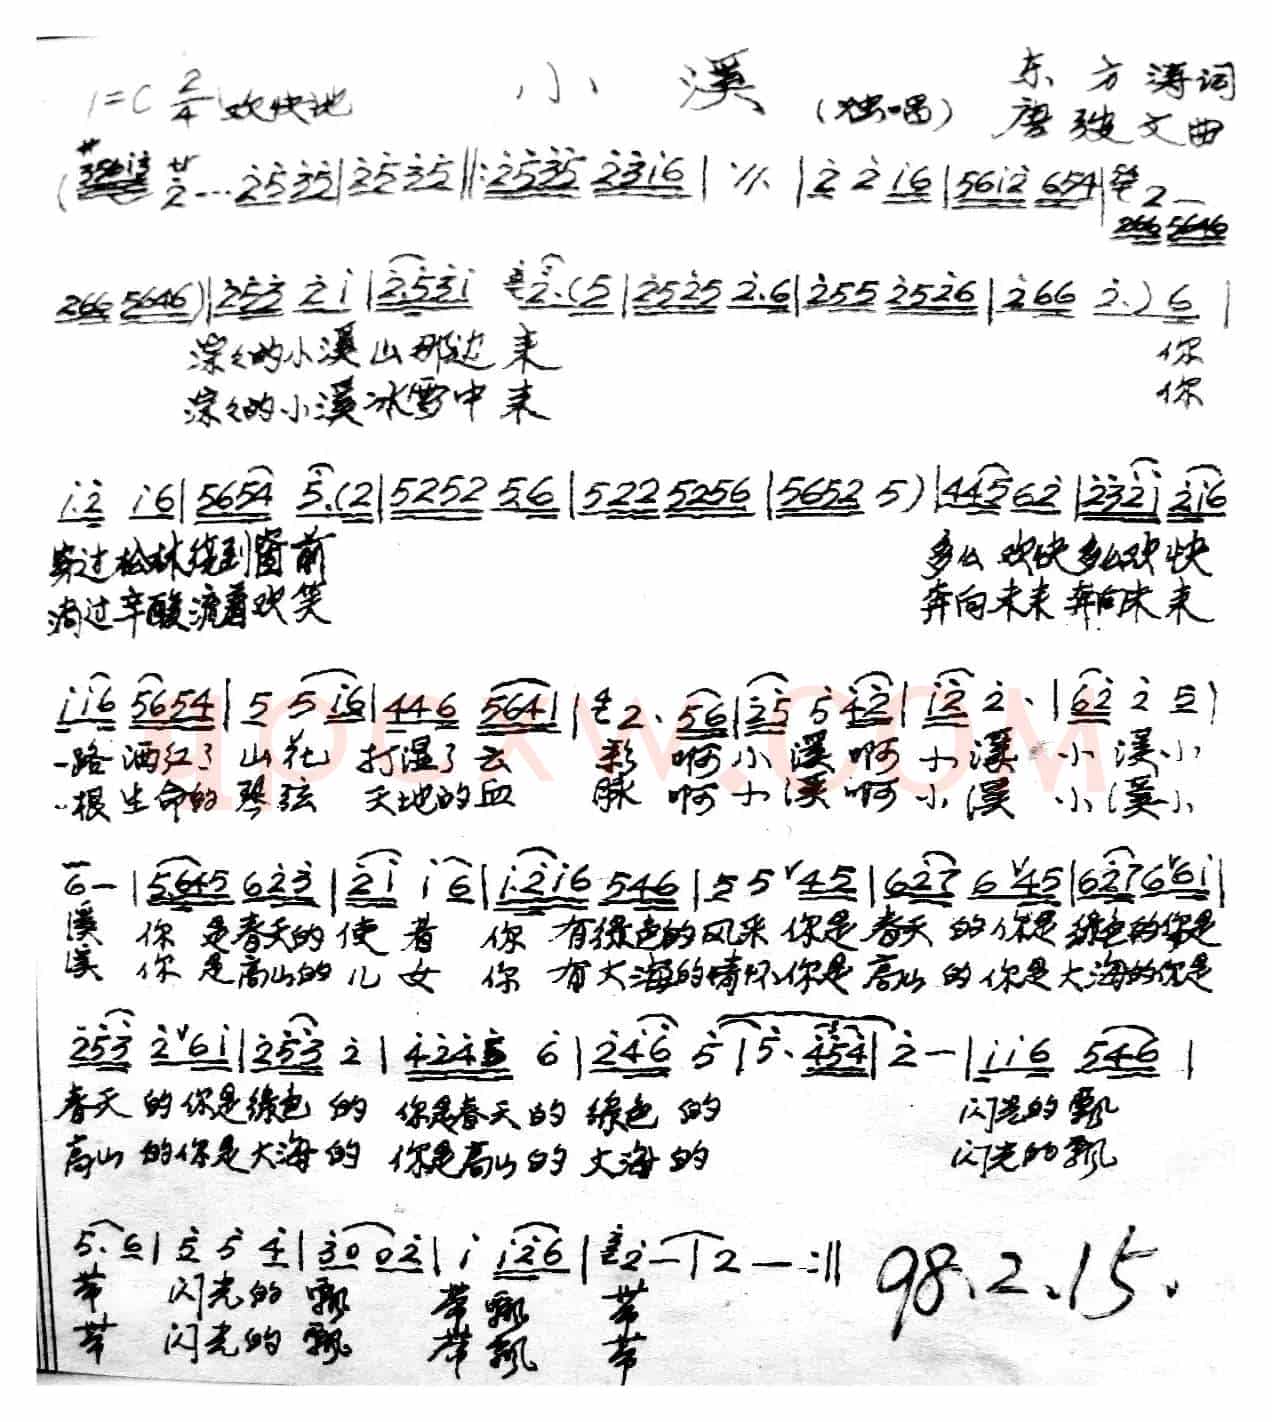 小溪
1=C 2/4 欢快地
(独唱)
东方涛词
曲
2... 2535 | 2535 ‖: 2535 2316 | ·//· | 2 2 16 | 5612 654 | 2 —
266 5646
266 5646) | 253 21 | 2.531 2.(5 | 2525 2.6 | 255 2526 | 266 2.) 6 |
淙々的小溪山那边来 你
淙々的小溪冰雪中来 你
1.2 16 | 5654 5.(2 | 5252 5.6 | 522 5256 | 5652 5) | 445 62 | 2321 216
穿过松林绕到窗前 多么欢快多么欢快
淌过辛酸流着欢笑 奔向未来奔向未来
116 5654 | 5 5 16 | 446 5641 | 2. 56 | 25 5 42 | 12 2. | 62 2 5 |
一路洒红了山花 打湿了云彩 啊小溪啊小溪 小溪小
一根生命的琴弦 天地的血脉 啊小溪啊小溪 小溪小
6— | 5.645 623 | 21 1 6 | 1.216 546 | 5 5 ∨45 | 627 6∨45 | 6276∨61 |
溪 你是春天的使者 你有绿色的风采你是春天的你是绿色的你是
溪 你是高山的儿女 你有大海的情怀你是高山的你是大海的你是
253 2∨61 | 253 2 | 4245 6 | 246 5 | 5. 454 | 2— | 116 546 |
春天的你是绿色的 你是春天的绿色的 闪光的飘
高山的你是大海的 你是高山的大海的 闪光的飘
5. 6 | 5 5 4 | 30 02 | 1 126 | 2— | 2 — :‖ 98.2.15.
带 闪光的飘 带飘 带
带 闪光的飘 带飘 带